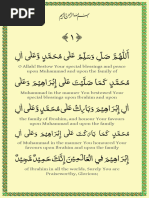 بسم الله الرحمن الرحيم
﴿ ١ ﴾
اَللّٰهُمَّ صَلِّ وَسَلِّمْ عَلَى مُحَمَّدٍ وَعَلَى آلِ
O Allah! Bestow Your special Blessings and peace
upon Muhammad and upon the family of
مُحَمَّدٍ كَمَا صَلَّيْتَ عَلَى إِبْرَاهِيْمَ وَعَلَى آلِ
Muhammad in the manner You bestowed Your
special Blessings upon Ibrahim and upon
إِبْرَاهِيْمَ وَبَارِكْ عَلَى مُحَمَّدٍ وَعَلَى آلِ
the family of Ibrahim, and honour Your favours
upon Muhammad and upon the family of
مُحَمَّدٍ كَمَا بَارَكْتَ عَلَى إِبْرَاهِيْمَ وَعَلَى آلِ
Muhammad in the manner You honoured Your
favours upon Ibrahim and upon the family
إِبْرَاهِيْمَ فِي الْعَالَمِيْنَ إِنَّكَ حَمِيْدٌ مَّجِيْدٌ
of Ibrahim in all the worlds, Surely You are
Praiseworthy, Glorious